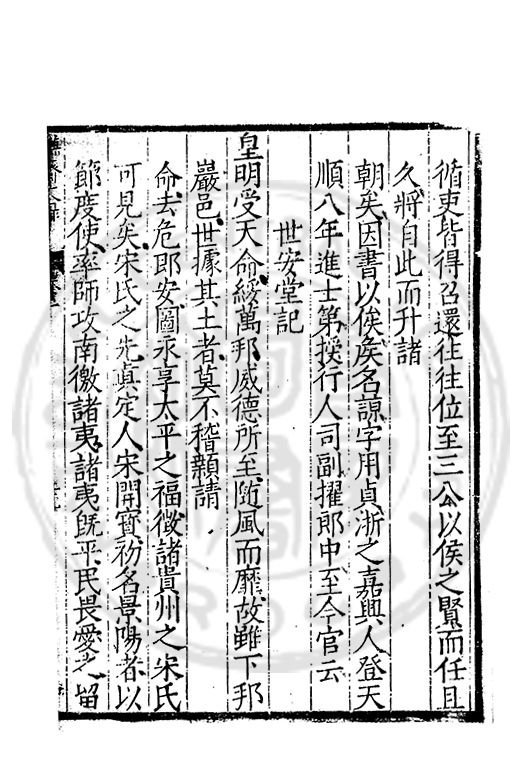 循吏皆得召還往往位至三公以侯之賢而任且
久將自此而升諸
朝矣因書以俟矦名諒字用貞浙之嘉興人登天
順八年進士第授行人司副擢郎中至今官云
世安堂記
皇明受天命綏萬邦威德所至隨風而靡故雖下邦
嚴邑世據其土者莫不稽顙請
命去危即安圖永享太平之福徵諸貴州之宋氏
可見矣宋氏之先真定人宋開寳初名景陽者以
節度使率師攻南徼諸夷諸夷旣平民畏愛之留